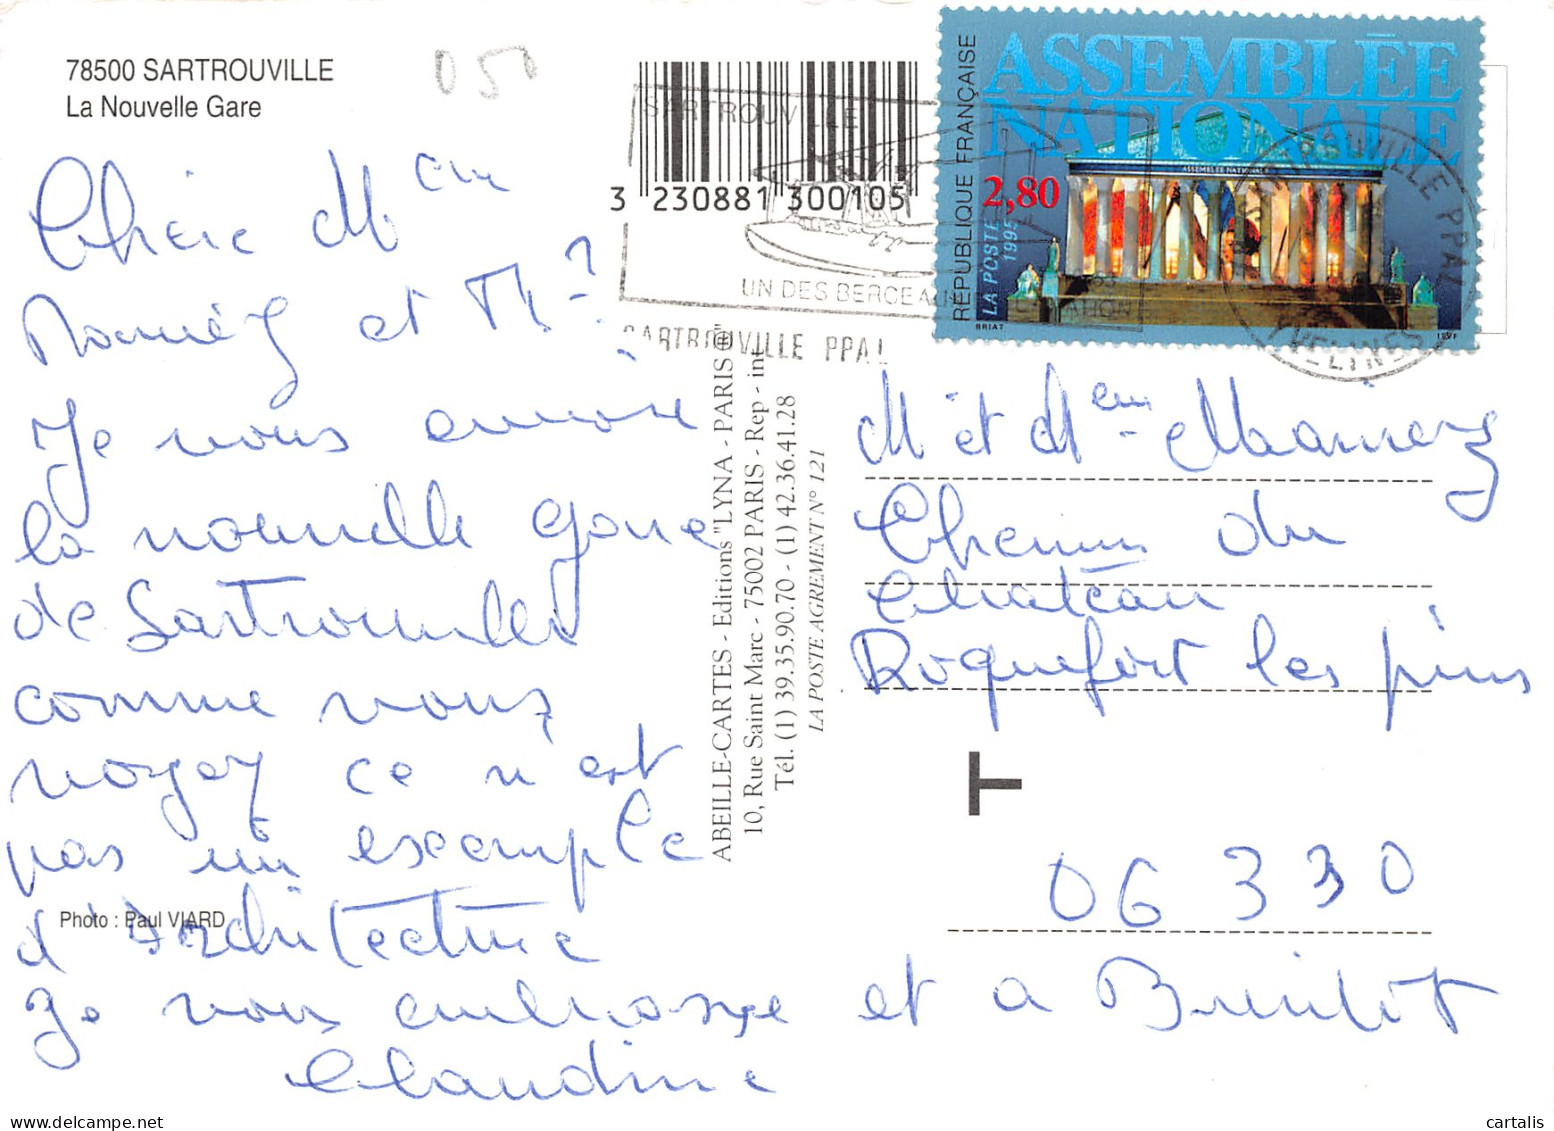 78500 SARTROUVILLE
La Nouvelle Gare
050
Chère Mem
et Mr
Je vous envoie
la nouvelle gare
de Sartrouville
comme vous
voyez ce n'est
pas un exemple
d'Architecture
Je vous embrasse
Claudine
Photo : Paul VIARD
3 230881 300105
SARTROUVILLE
UN DES BERCEAUX
SARTROUVILLE PPAL
ASSEMBLÉE
NATIONALE
ASSEMBLEE NATIONALE
RÉPUBLIQUE FRANÇAISE
2,80
LA POSTE
1995
BRIAT
SARTROUVILLE PPAL
YVELINES
ABEILLE-CARTES - Editions "LYNA - PARIS"
10, Rue Saint Marc - 75002 PARIS - Rep - int
Tél. (1) 39.35.90.70 - (1) 42.36.41.28
LA POSTE AGREMENT N° 121
M et Mem
Chemin du
Château
Roquefort les pins
T
06330
et a
cartalis
www.delcampe.net